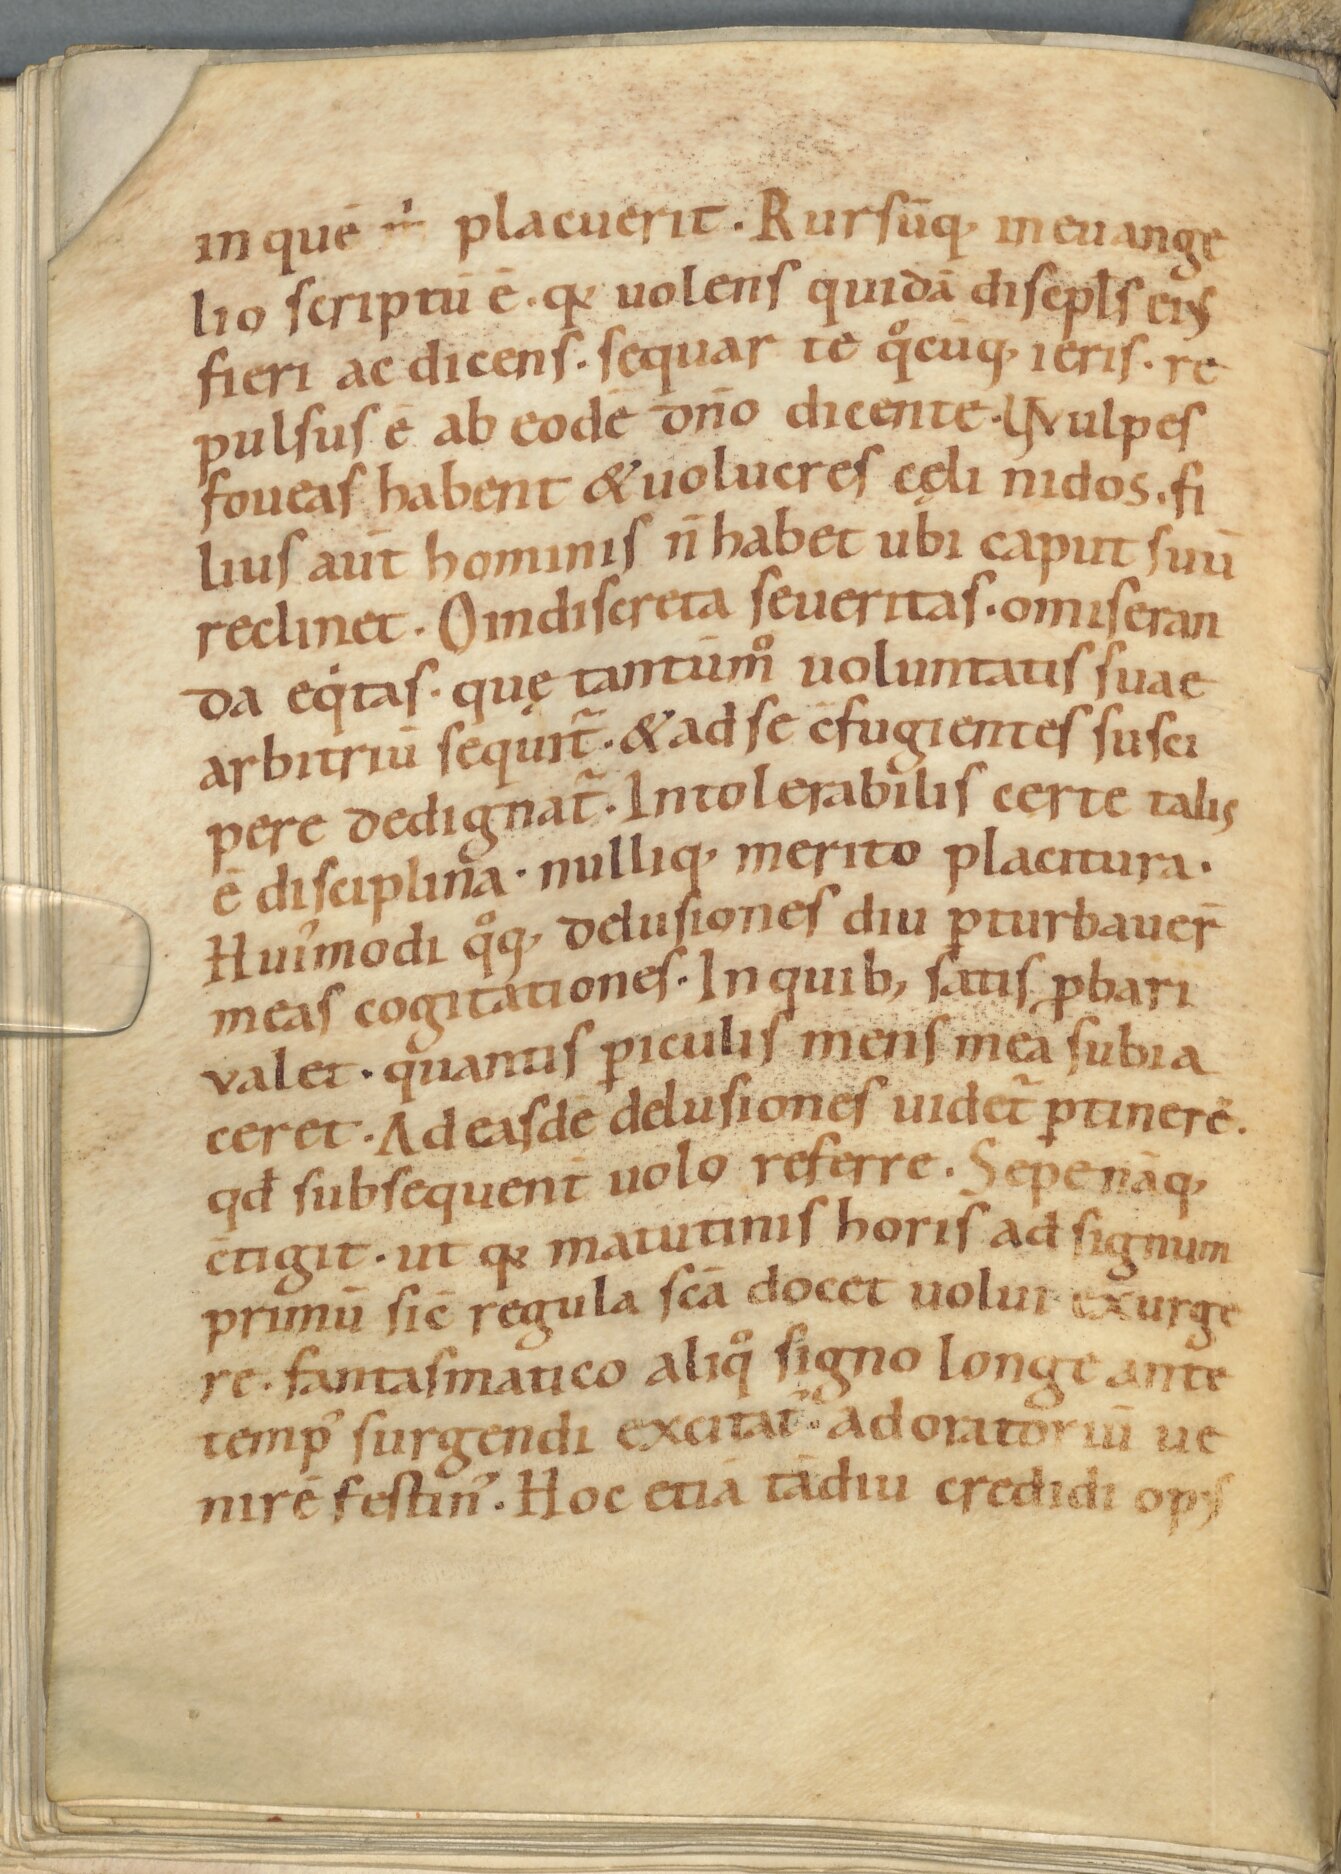 in quē m̄ placuerit. Rursūq; in euange
lio scriptū ē. qꝛ uolens quidā discipl̄s eiꝰ
fieri ac dicens. sequar te qͦcūq; ieris. re
pulsus ē ab eodē dn̄o dicente. Vulpes
foueas habent & uolucres cęli nidos. fi
lius aūt hominis n̄ habet ubi caput suū
reclinet. O indiscreta seueritas. o miseran
da eqͥtas. quę tantūmͦ uoluntatis suae
arbitriū sequit̃. & ad se c̄fugientes susci
pere dedignat̃. Intolerabilis certe talis
ē disciplina. nulliq; merito placitura.
Huiꝰmodi qͦq; delusiones diu ꝑturbauer̄
meas cogitationes. In quib; satis ꝓbari
valet. quantis ꝑiculis mens mea subia
ceret. Ad easdē delusiones uidet̃ ꝑtinere.
qđ subsequent̄ uolo referre. Sepe nāq;
c̄tigit. ut qꝛ matutinis horis ad signum
primū sic̄ regula sc̄a docet uolui exurge
re. fantasmatico aliqͦ signo longe ante
tempꝰ surgendi excitatꝰ. ad oratoriū ue
nirē festinꝰ. Hoc etiā tādiu credidi opꝰ